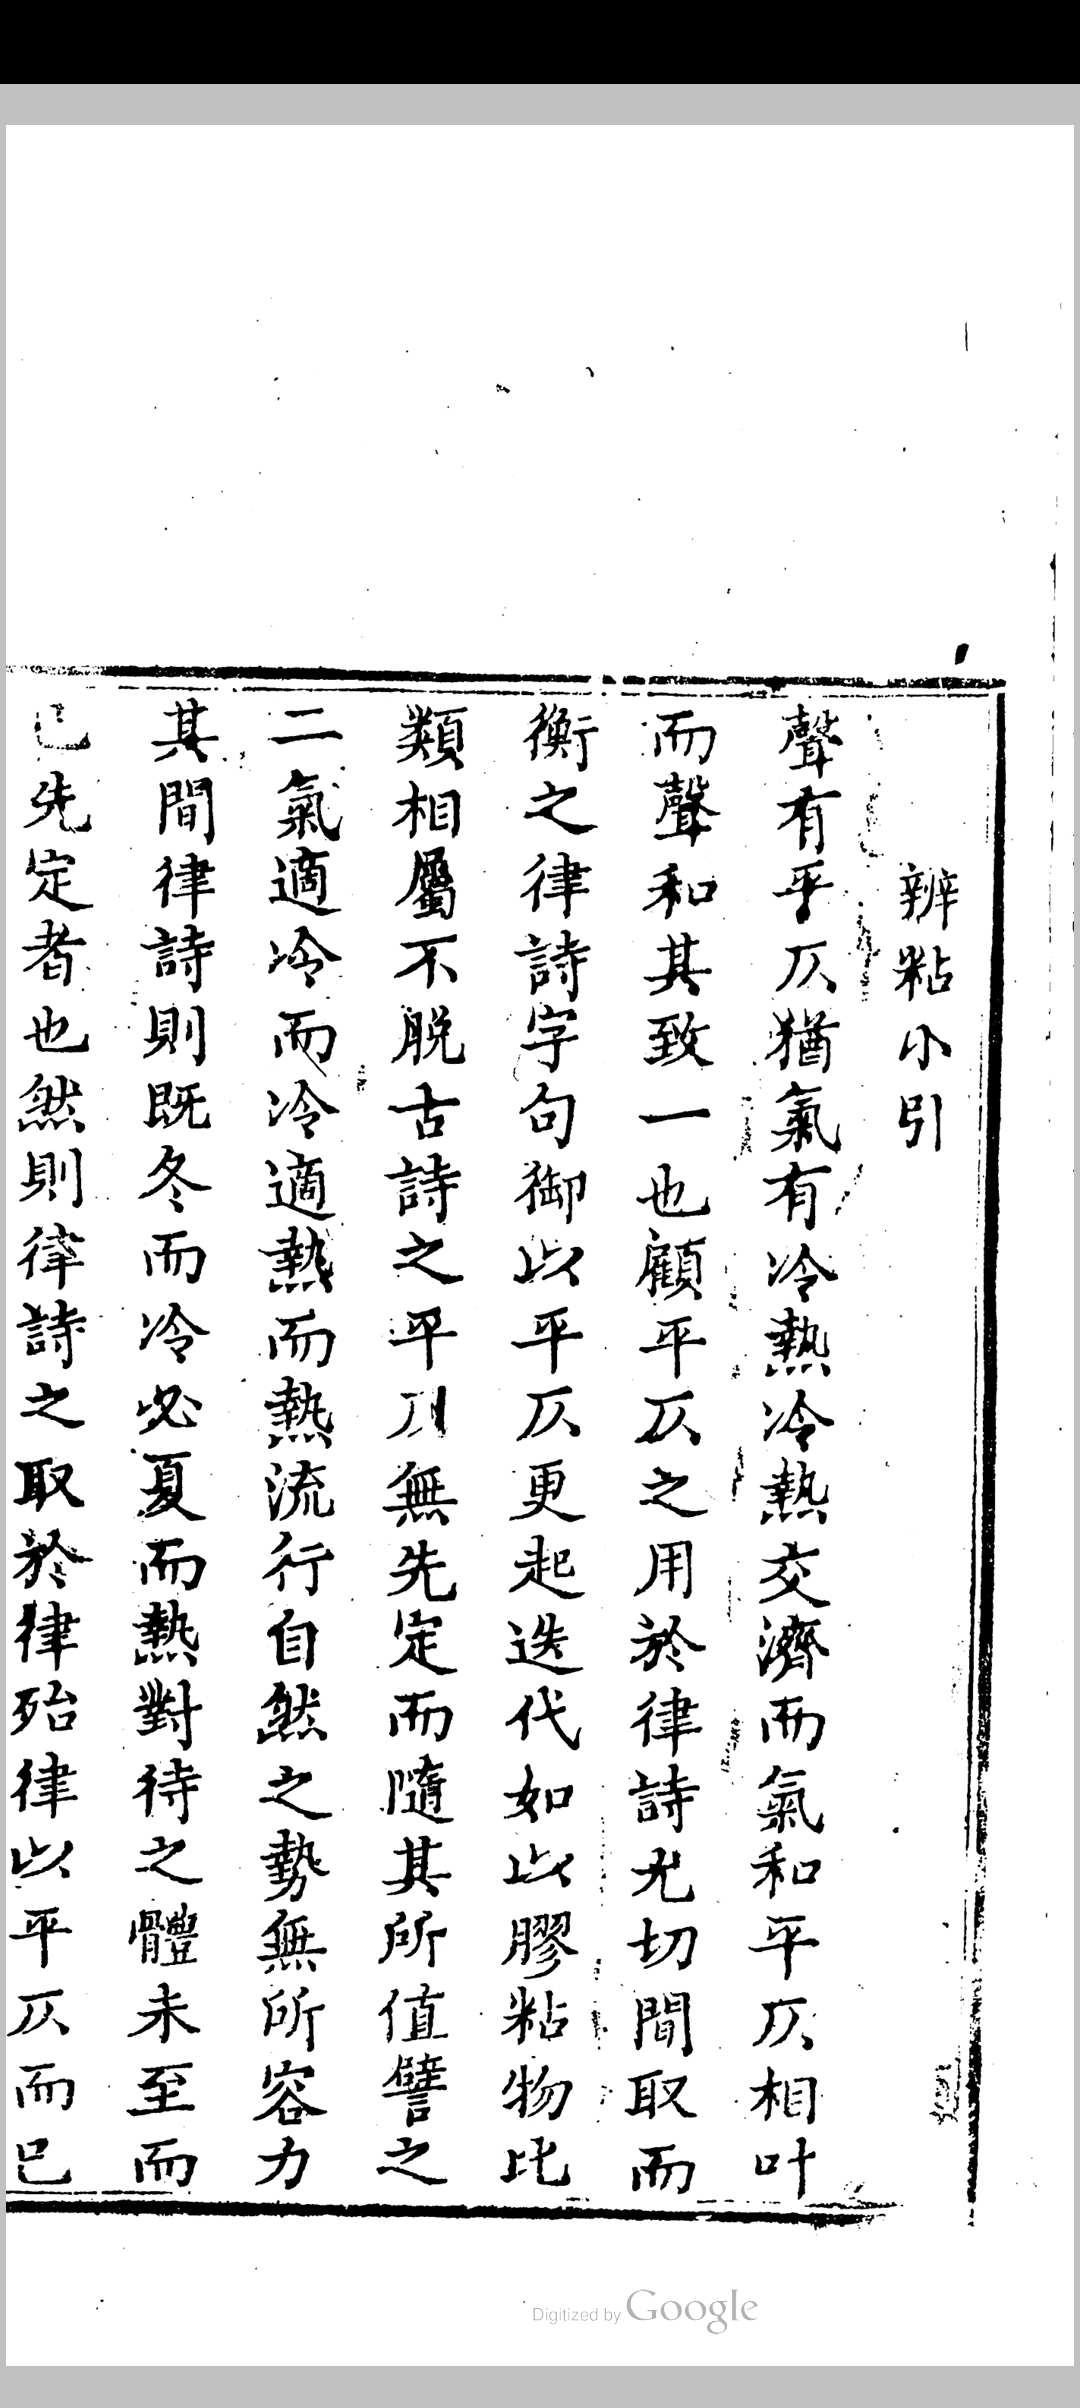 辨粘小引
聲有乎仄猶氣有冷熱冷熱交濟而氣和平仄相叶
而聲和其致一也顧平仄之用於律詩尤切間取而
衡之律詩字句御以平仄更起迭代如以膠粘物比
類相屬不脫古詩之平仄無先定而隨其所值譬之
二氣適冷而冷適熱而熱流行自然之勢無所容力
其間律詩則既冬而冷必夏而熱對待之體未至而
已先定者也然則律詩之取於律殆律以平仄而已
Digitized by Google